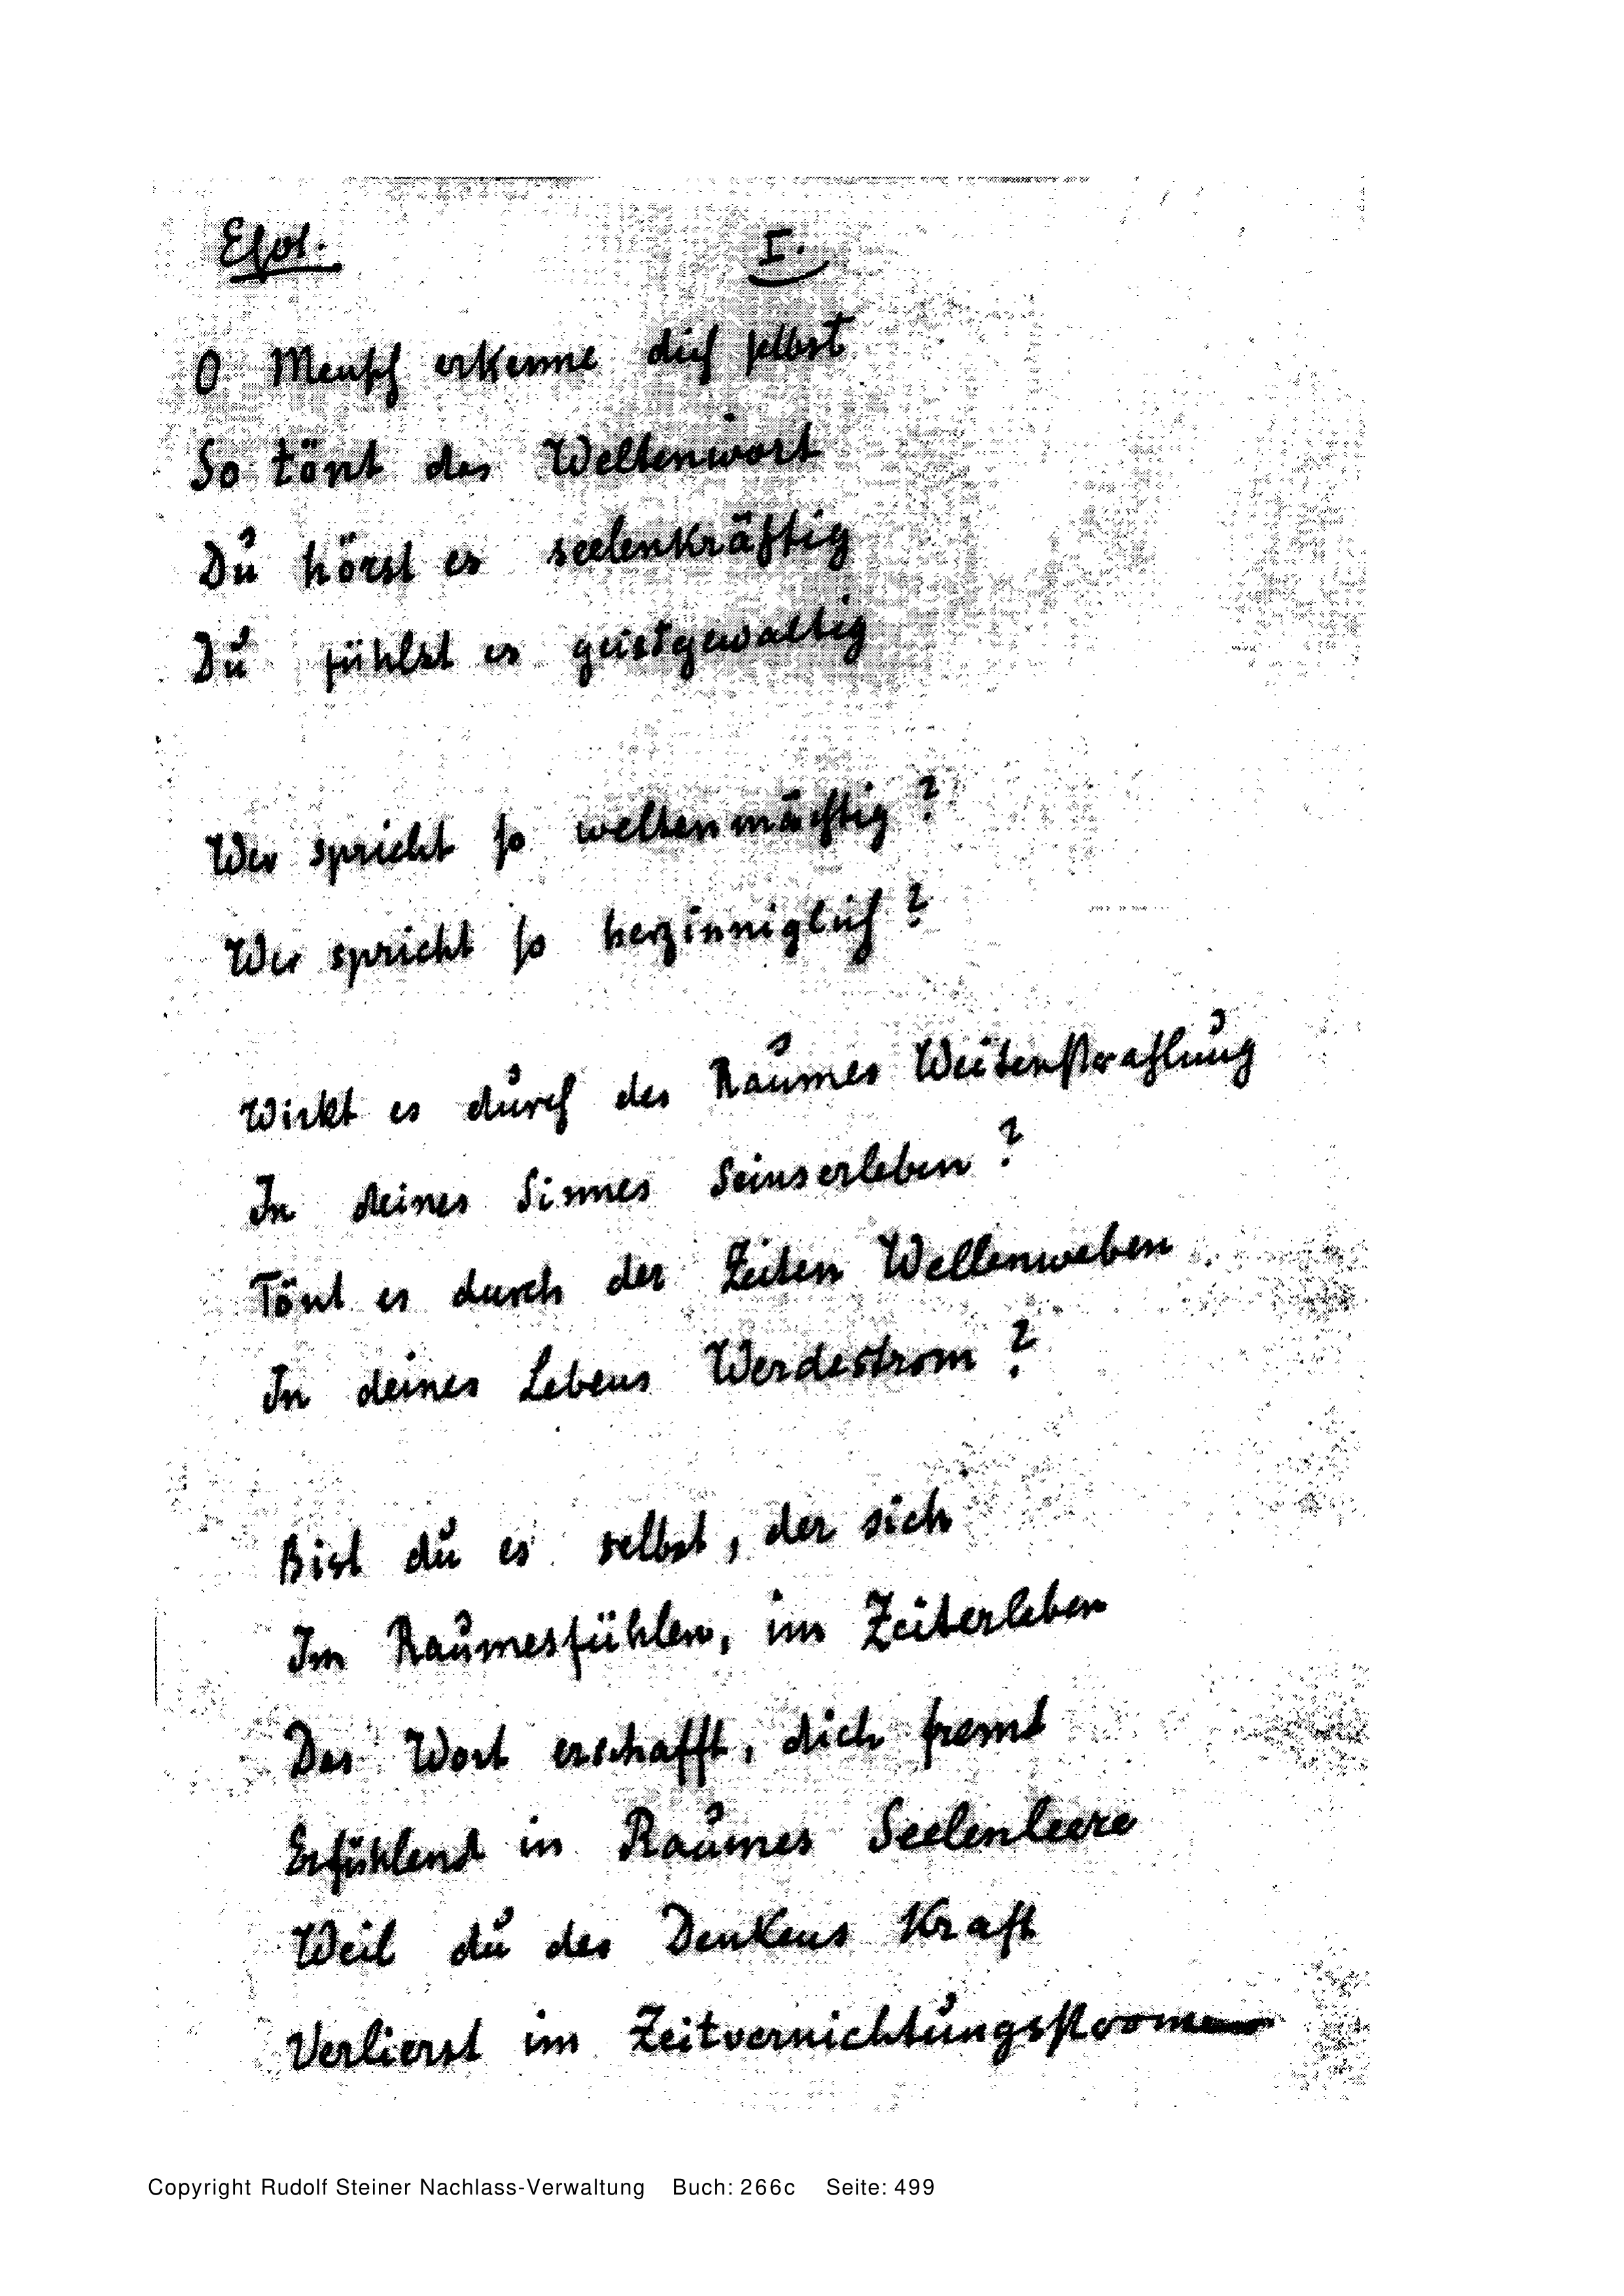 Esot. I.
O Mensch erkenne dich selbst
So tönt das Weltenwort
Du hörst es seelenkräftig
Du fühlst es geistgewaltig
Wer spricht so weltenmächtig?
Wer spricht so herzinniglich?
Wirkt es durch des Raumes Weitenstrahlung
In deines Sinnes Seinserleben?
Tönt es durch der Zeiten Wellenweben
In deines Lebens Werdestrom?
Bist du es selbst, der sich
Im Raumesfühlen, im Zeiterleben
Das Wort erschafft, dich fremd
Erfühlend in Raumes Seelenleere
Weil du des Denkens Kraft
Verlierst im Zeitvernichtungsstrome
Copyright Rudolf Steiner Nachlass-Verwaltung Buch: 266c Seite: 499